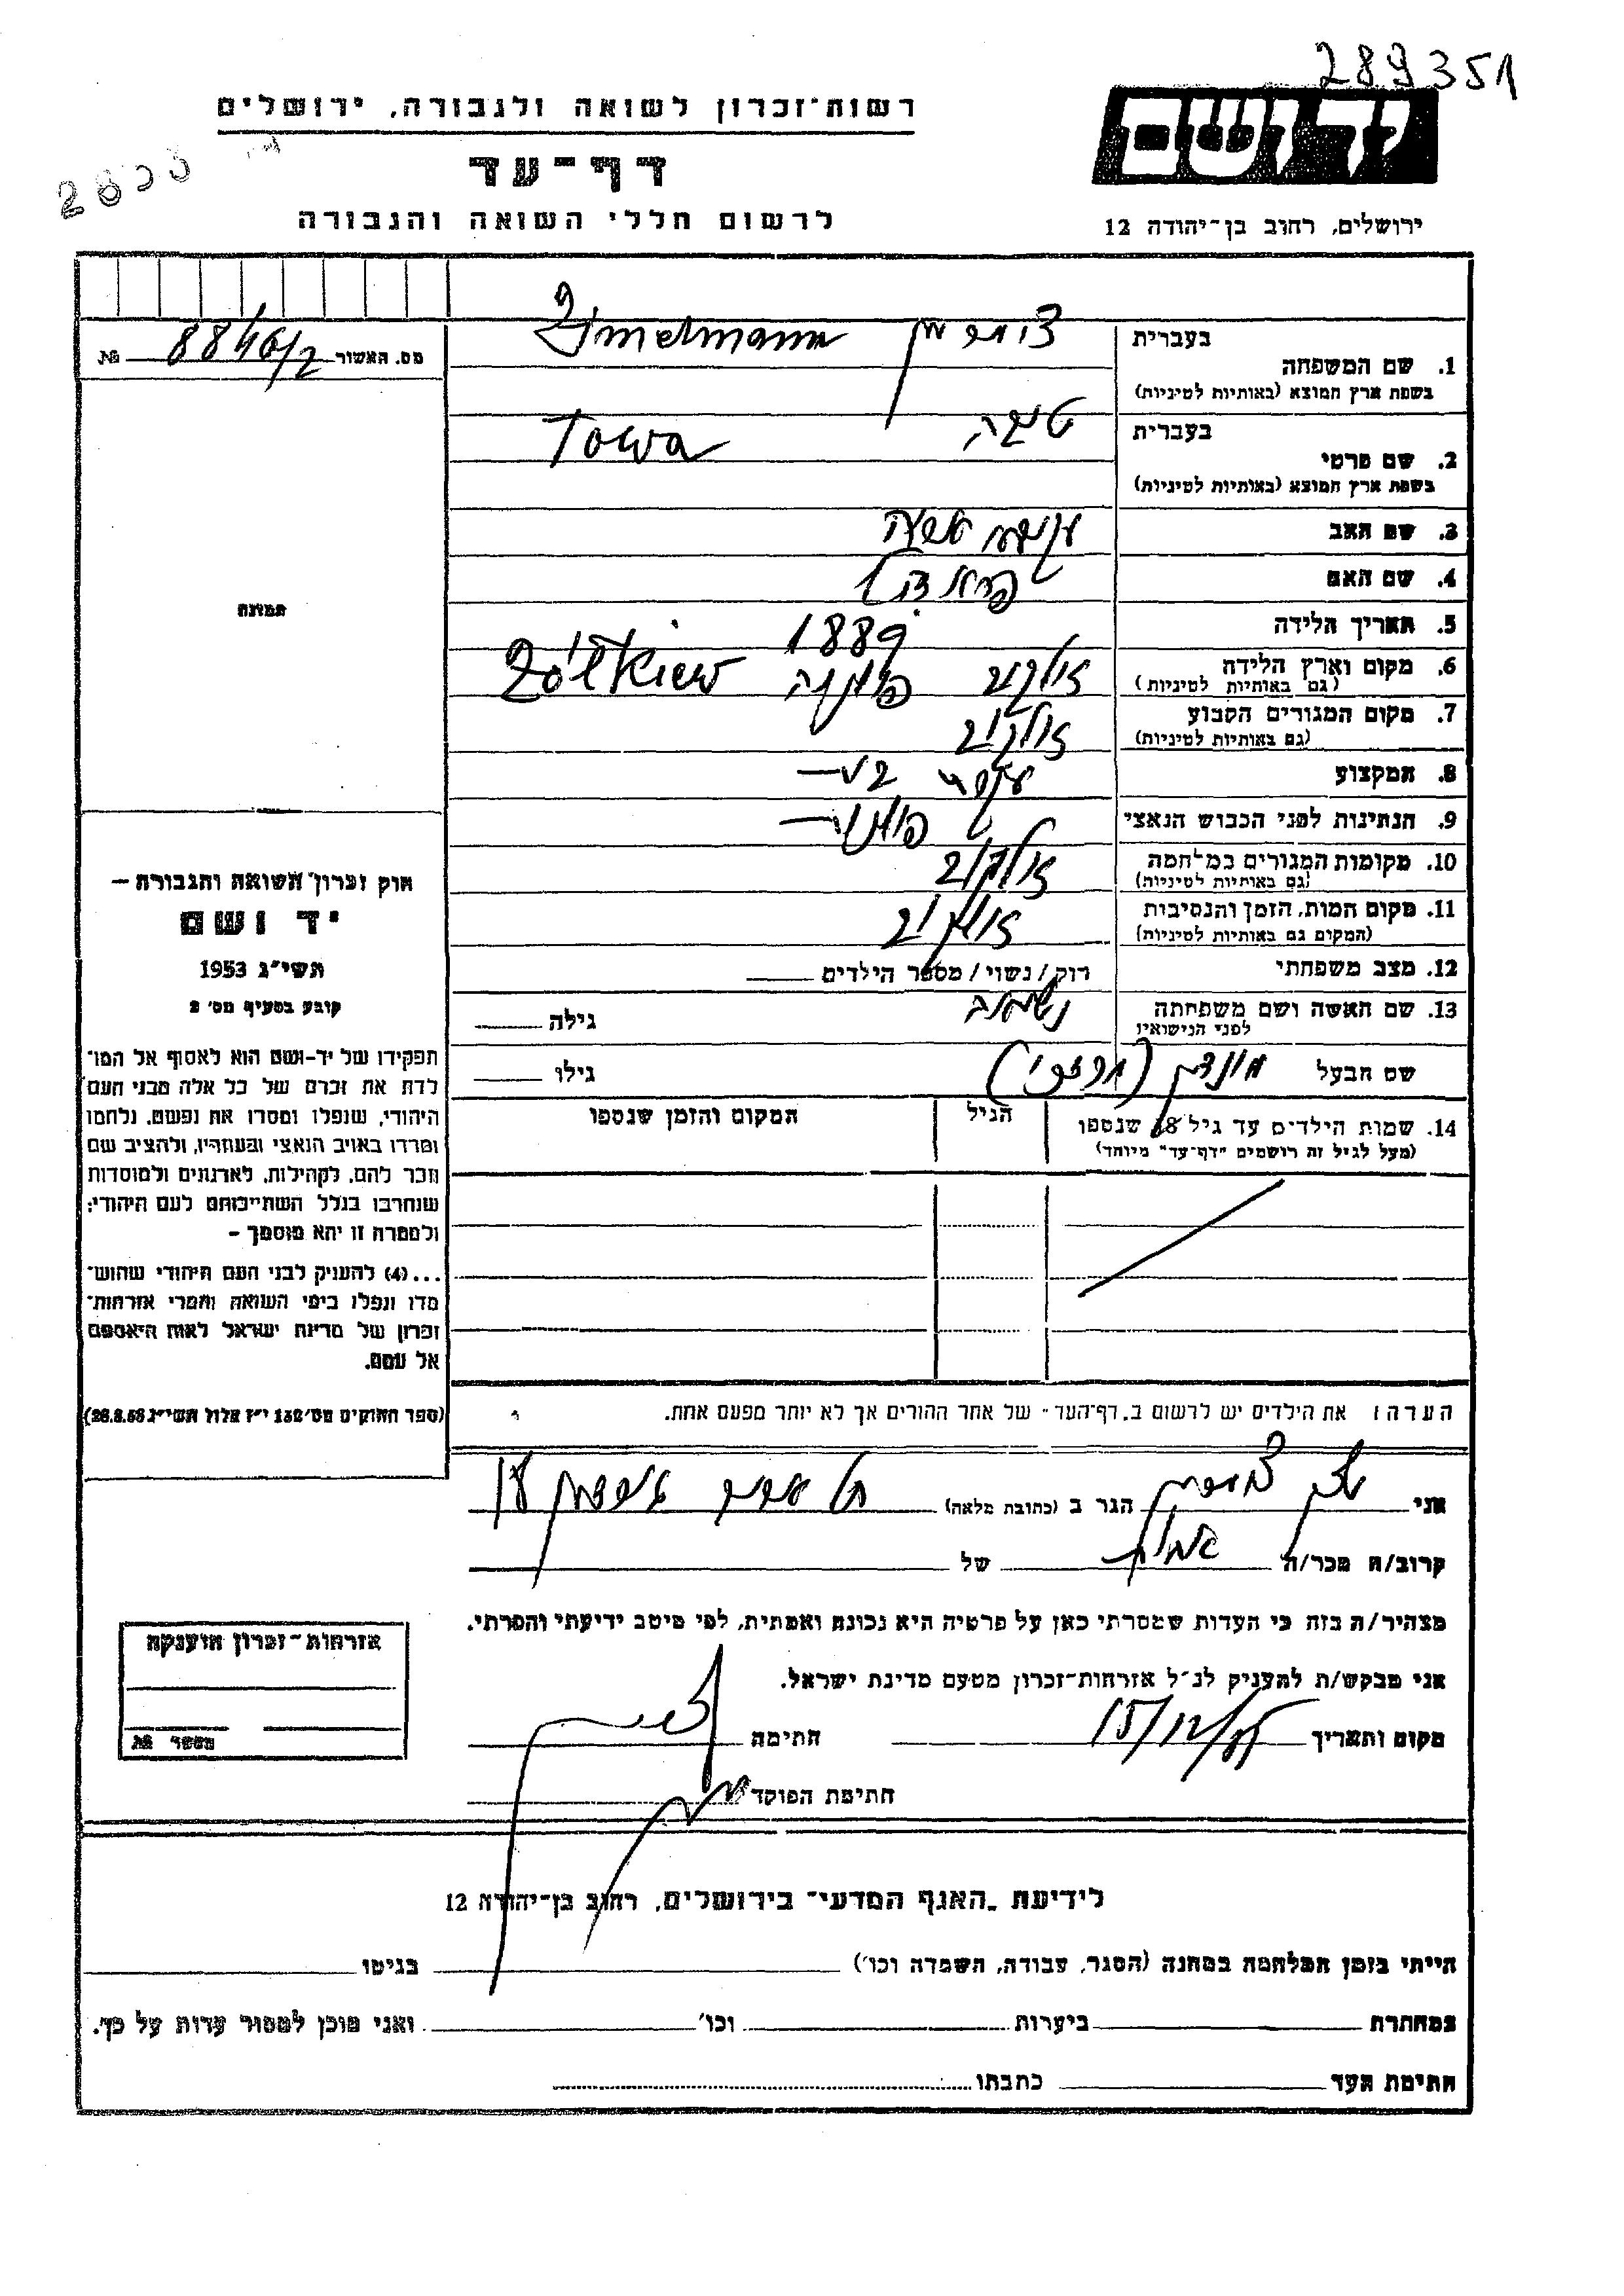 289351
רשות-זכרון לשואה ולגבורה, ירושלים
יד ושם
דף-עד
לרשום חללי השואה והגבורה
ירושלים, רחוב בן-יהודה 12
מס. האשור 8846/2 №
בעברית
1. שם המשפחה Zimelmann
(בשפת ארץ המוצא (באותיות לטיניות
בעברית טובה
2. שם פרטי Towa
(בשפת ארץ המוצא (באותיות לטיניות
3. שם האב
4. שם האם
5. תאריך הלידה 1889
6. מקום וארץ הלידה זולקוב פולניה Żółkiew
(גם באותיות לטיניות)
7. מקום המגורים הקבוע זולקוב
(גם באותיות לטיניות)
8. המקצוע עקרת בית
9. הנתינות לפני הכבוש הנאצי פולני
10. מקומות המגורים במלחמה זולקוב
(גם באותיות לטיניות)
11. מקום המות, הזמן והנסיבות זולקוב
(המקום גם באותיות לטיניות)
12. מצב משפחתי רוק/נשוי/מספר הילדים
נשואה
13. שם האשה ושם משפחתה גילה
לפני הנישואין
שם הבעל גילו
14. שמות הילדים עד גיל 18 שנספו הגיל המקום והזמן שנספו
(מעל לגיל זה רושמים "דף-עד" מיוחד)
תמונה
חוק זכרון השואה והגבורה –
יד ושם
תשי"ג 1953
קובע בסעיף מס' 2
תפקידו של יד-ושם הוא לאסוף אל המו־
לדת את זכרם של כל אלה מבני העם
היהודי, שנפלו ומסרו את נפשם, נלחמו
ומרדו באויב הנאצי ובעוזריו, ולהציב שם
וזכר להם, לקהילות, לארגונים ולמוסדות
שנחרבו בגלל השתייכותם לעם היהודי;
ולמטרה זו יהא מוסמך –
...(4) להעניק לבני העם היהודי שהוש־
מדו ונפלו בימי השואה והמרי אזרחות־
זכרון של מדינת ישראל לאות היאספם
אל עמם.
(ספר החוקים מס' 132 י"ז אלול תשי"ג 28.8.53)
הערה: את הילדים יש לרשום ב"דף-העד" של אחד ההורים אך לא יותר מפעם אחת.
אני הגר ב (כתובת מלאה) תל אביב
קרוב/ה מכר/ה של
מצהיר/ה בזה כי העדות שמסרתי כאן על פרטיה היא נכונה ואמתית, לפי מיטב ידיעתי והכרתי.
אני מבקש/ת להעניק לנ"ל אזרחות-זכרון מטעם מדינת ישראל.
מקום ותאריך חתימה
חתימת הפוקד
אזרחות-זכרון הוענקה
מספר №
לידיעת "האגף המדעי" בירושלים, רחוב בן-יהודה 12
הייתי בזמן המלחמה במחנה (הסגר, עבודה, השמדה וכו') בגיטו
במחתרת ביערות וכו' ואני מוכן למסור עדות על כך.
חתימת העד כתבתו